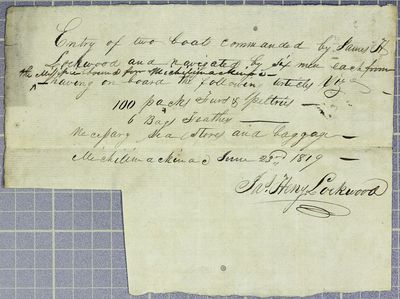 Entry of two boat commanded by James H
Lockwood and navigated by six men each from
the bound for Michilimackinac
having on board the following articles Viz
100 packs Furs & Peltries —
6 Bags Feathers —
Necessary Sea Stores and baggage —
Michilimackinac June 23rd 1819 —
Jas. Henry Lockwood